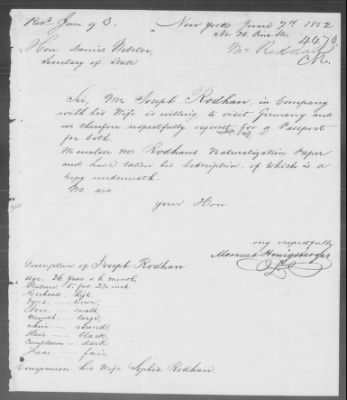 Recd June 9 B.
New York June 7th 1852
No. 92 Pine Str.
4473
Hon. Daniel Webster,
Mr Reddall
Secretary of State
Sir, Mr Joseph Rodhan, in Company
with his Wife is willing to visit Germany and
we therefore respectfully request for a Passport
for both.
We enclose Mr Rodhans Naturalization Paper
and have taken his Description, of which is a
Copy underneath.
We are
your Hon
very respectfully
Description of Joseph Rodhan
age. 36 Year & 6 month,
Stature 5 feet 2½ inch
Forehead high
Eyes brown,
Nose small,
mouth large,
chin round,
Hair black,
Complexion dark
Face fair
Companion his Wife Sophia Rodhan.